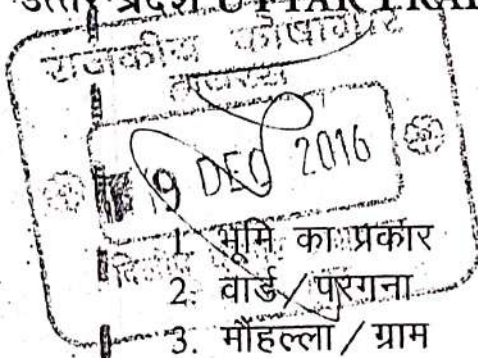 उत्तर प्रदेश UTTAR PRA
राजकीय कोषागार
19 DEC 2016
1. भूमि का प्रकार
2. वार्ड / परगना
3. मौहल्ला / ग्राम